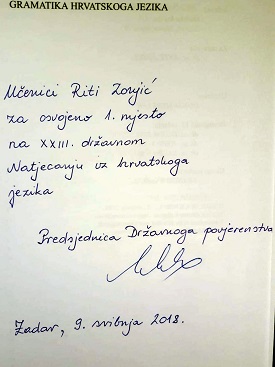 GRAMATIKA HRVATSKOGA JEZIKA
Učenici Riti Zorjić
za osvojeno 1. mjesto
na XXIII. državnom
Natjecanju iz hrvatskoga
jezika
Predsjednica Državnoga povjerenstva
Zadar, 9. svibnja 2018.